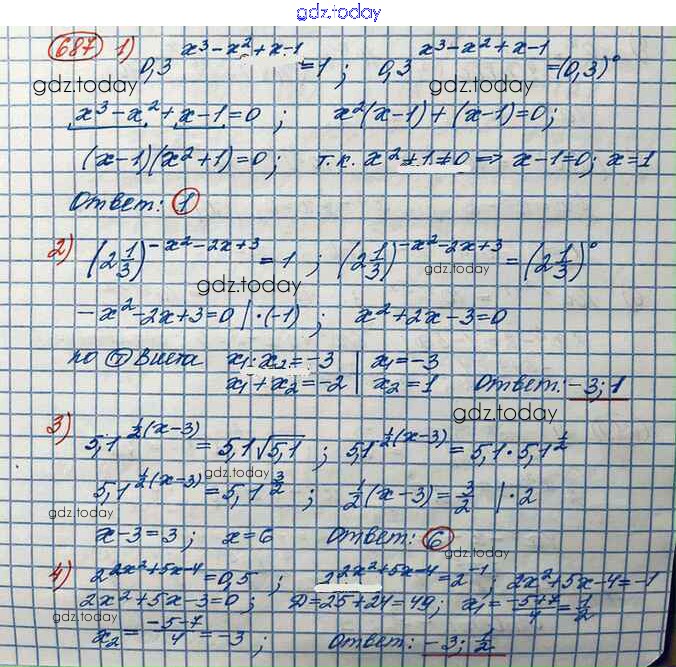 gdz.today
687 1) 0,3^(x³-x²+x-1) = 1 ; 0,3^(x³-x²+x-1) = (0,3)⁰
gdz.today gdz.today
x³-x²+x-1=0 ; x²(x-1)+(x-1)=0;
(x-1)(x²+1)=0; т.к. x²+1≠0 => x-1=0; x=1
Ответ: 1
2) (2 1/3)^(-x²-2x+3) = 1 ; (2 1/3)^(-x²-2x+3) = (2 1/3)⁰
gdz.today gdz.today
-x²-2x+3=0 |·(-1) ; x²+2x-3=0
по Т Виета x₁·x₂=-3 | x₁=-3
x₁+x₂=-2 | x₂=1 Ответ: -3; 1
gdz.today
3) 5,1^(1/2(x-3)) = 5,1√5,1 ; 5,1^(1/2(x-3)) = 5,1·5,1^(1/2)
gdz.today
5,1^(1/2(x-3)) = 5,1^(3/2) ; 1/2(x-3)=3/2 |·2
gdz.today
x-3=3; x=6 Ответ: 6
gdz.today
4) 2^(2x²+5x-4) = 0,5 ; 2^(2x²+5x-4) = 2^(-1) ; 2x²+5x-4=-1
2x²+5x-3=0; D=25+24=49; x₁=(-5+7)/4=1/2
gdz.today gdz.today
x₂=(-5-7)/4=-3 ; Ответ: -3; 1/2